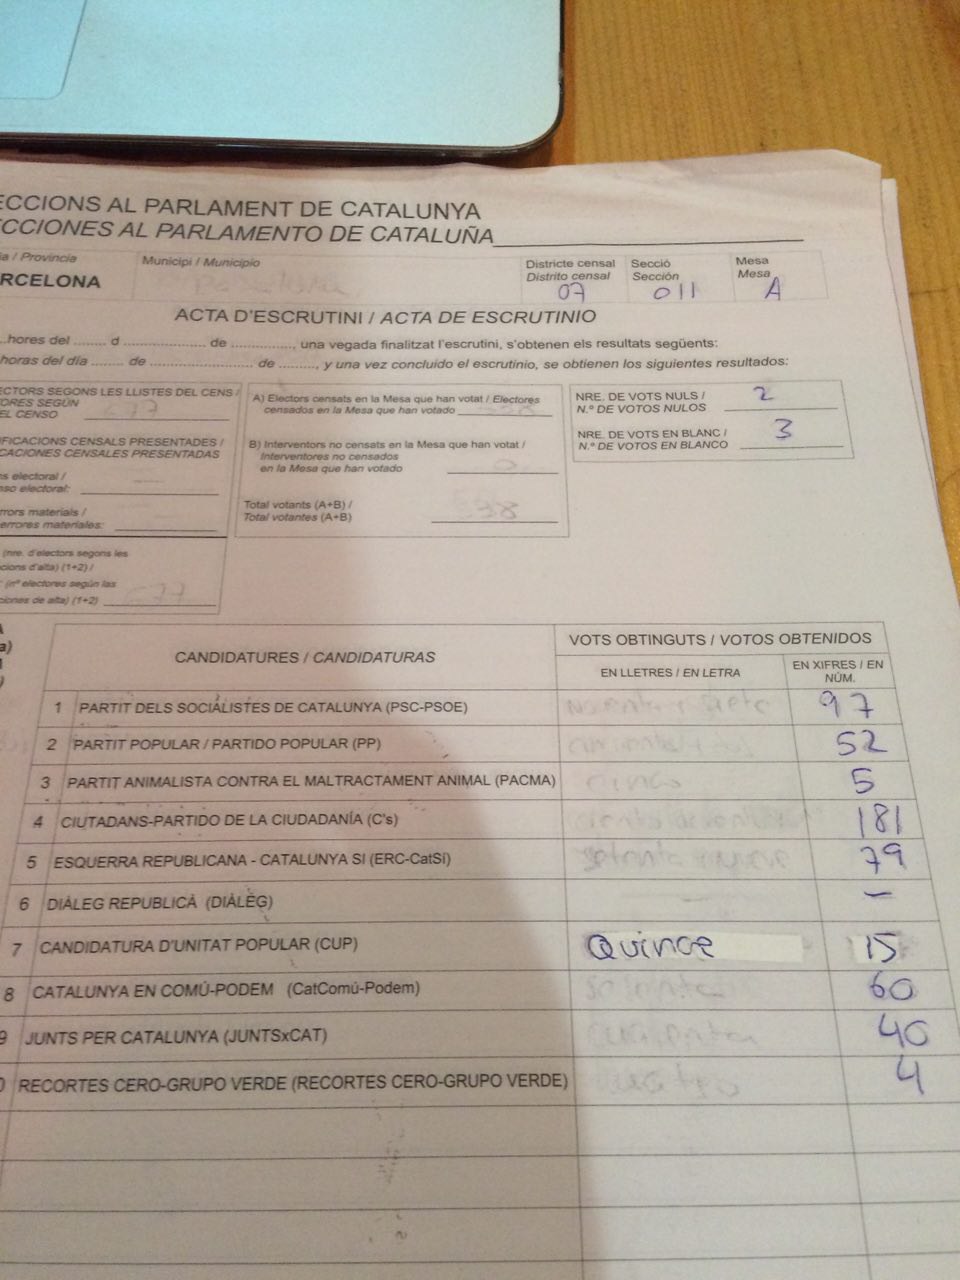 ECCIONS AL PARLAMENT DE CATALUNYA
CCIONES AL PARLAMENTO DE CATALUÑA
ia / Provincia
RCELONA
Municipi / Municipio
Districte censal
Distrito censal
07
Secció
Sección
011
Mesa
Mesa
A
ACTA D'ESCRUTINI / ACTA DE ESCRUTINIO
..hores del ....... d ..................... de ............., una vegada finalitzat l'escrutini, s'obtenen els resultats següents:
horas del día ........ de .......................... de ........, y una vez concluido el escrutinio, se obtienen los siguientes resultados:
ECTORS SEGONS LES LLISTES DEL CENS /
ORES SEGÚN
EL CENSO 677
IFICACIONS CENSALS PRESENTADES /
CACIONES CENSALES PRESENTADAS
ns electoral /
nso electoral:
rrors materials /
errores materiales:
(nre. d'electors segons les
cions d'alta) (1+2) /
(nº electores según las
ciones de alta) (1+2) 677
A) Electors censats en la Mesa que han votat / Electores
censados en la Mesa que han votado 538
B) Interventors no censats en la Mesa que han votat /
Interventores no censados
en la Mesa que han votado 0
Total votants (A+B) /
Total votantes (A+B) 538
NRE. DE VOTS NULS /
N.º DE VOTOS NULOS 2
NRE. DE VOTS EN BLANC /
N.º DE VOTOS EN BLANCO 3
CANDIDATURES / CANDIDATURAS
VOTS OBTINGUTS / VOTOS OBTENIDOS
EN LLETRES / EN LETRA
EN XIFRES / EN
NÚM.
1 PARTIT DELS SOCIALISTES DE CATALUNYA (PSC-PSOE) noventa y siete 97
2 PARTIT POPULAR / PARTIDO POPULAR (PP) cincuenta y dos 52
3 PARTIT ANIMALISTA CONTRA EL MALTRACTAMENT ANIMAL (PACMA) cinco 5
4 CIUTADANS-PARTIDO DE LA CIUDADANÍA (C's) 181
5 ESQUERRA REPUBLICANA - CATALUNYA SI (ERC-CatSí) setenta nueve 79
6 DIÀLEG REPUBLICÀ (DIÀLEG) —
7 CANDIDATURA D'UNITAT POPULAR (CUP) Quince 15
8 CATALUNYA EN COMÚ-PODEM (CatComú-Podem) sesenta 60
9 JUNTS PER CATALUNYA (JUNTSxCAT) cuarenta 40
0 RECORTES CERO-GRUPO VERDE (RECORTES CERO-GRUPO VERDE) cuatro 4